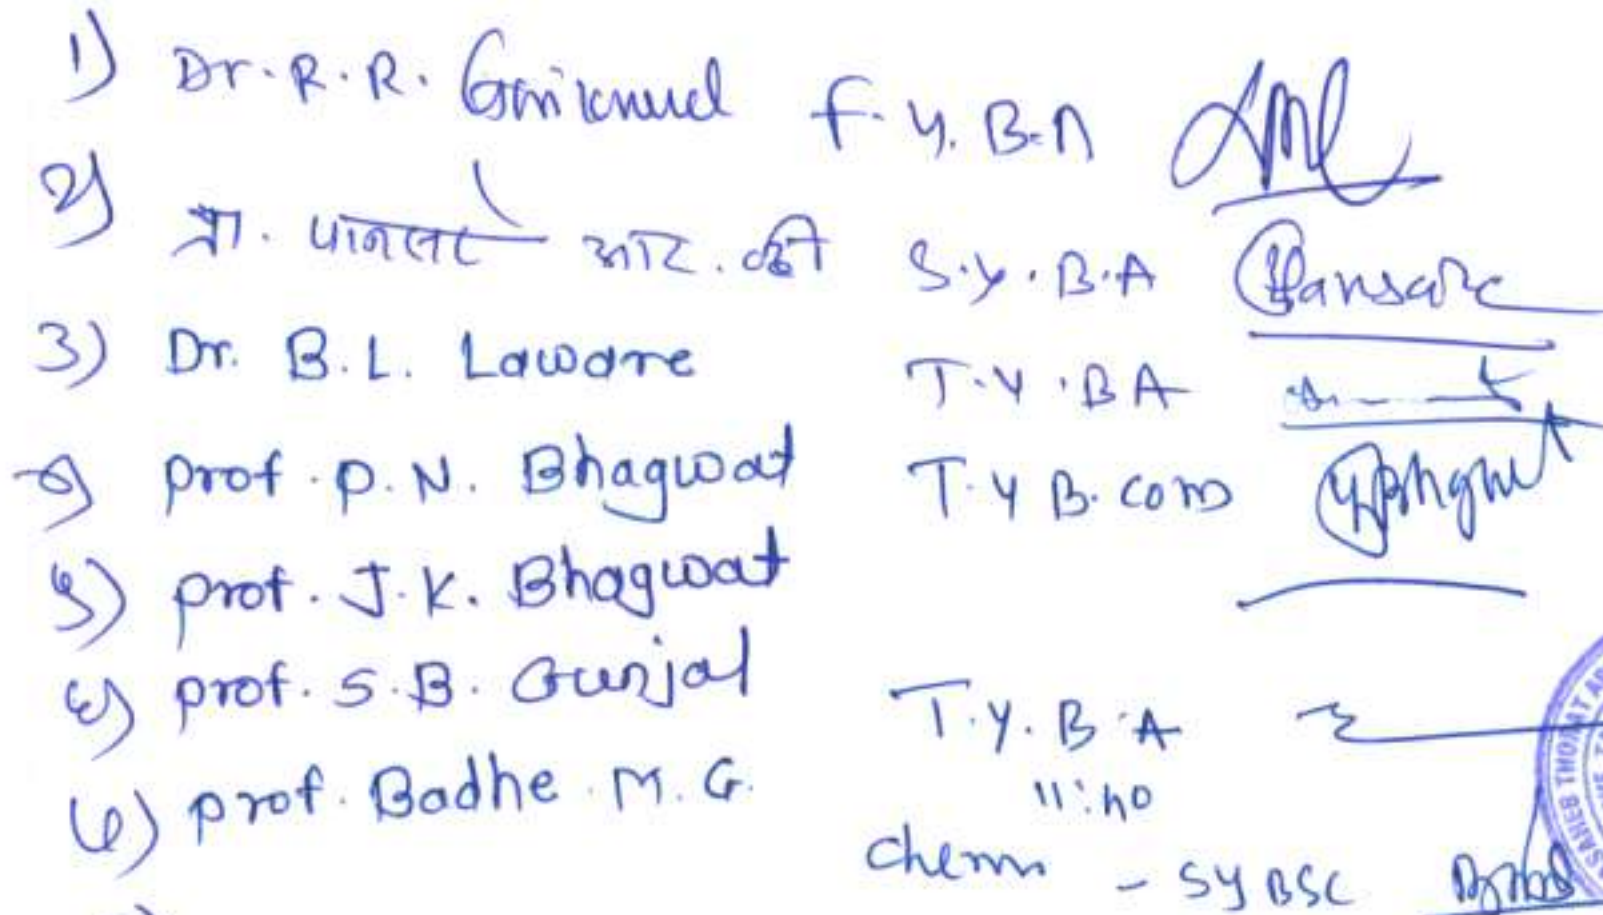 1) Dr. R. R. Gaikwad F. Y. B. A
2) प्रा. पानसरे आर. व्ही S. Y. B. A Pansare
3) Dr. B. L. Laware T. Y. B A
४) prof. P. N. Bhagwat T. Y B. com Bhagwat
५) prof. J. K. Bhagwat
६) prof. S. B. Gunjal T. Y. B. A
७) prof. Badhe. M. G. 11:40
chem - SY BSC
SAHEB THORAT